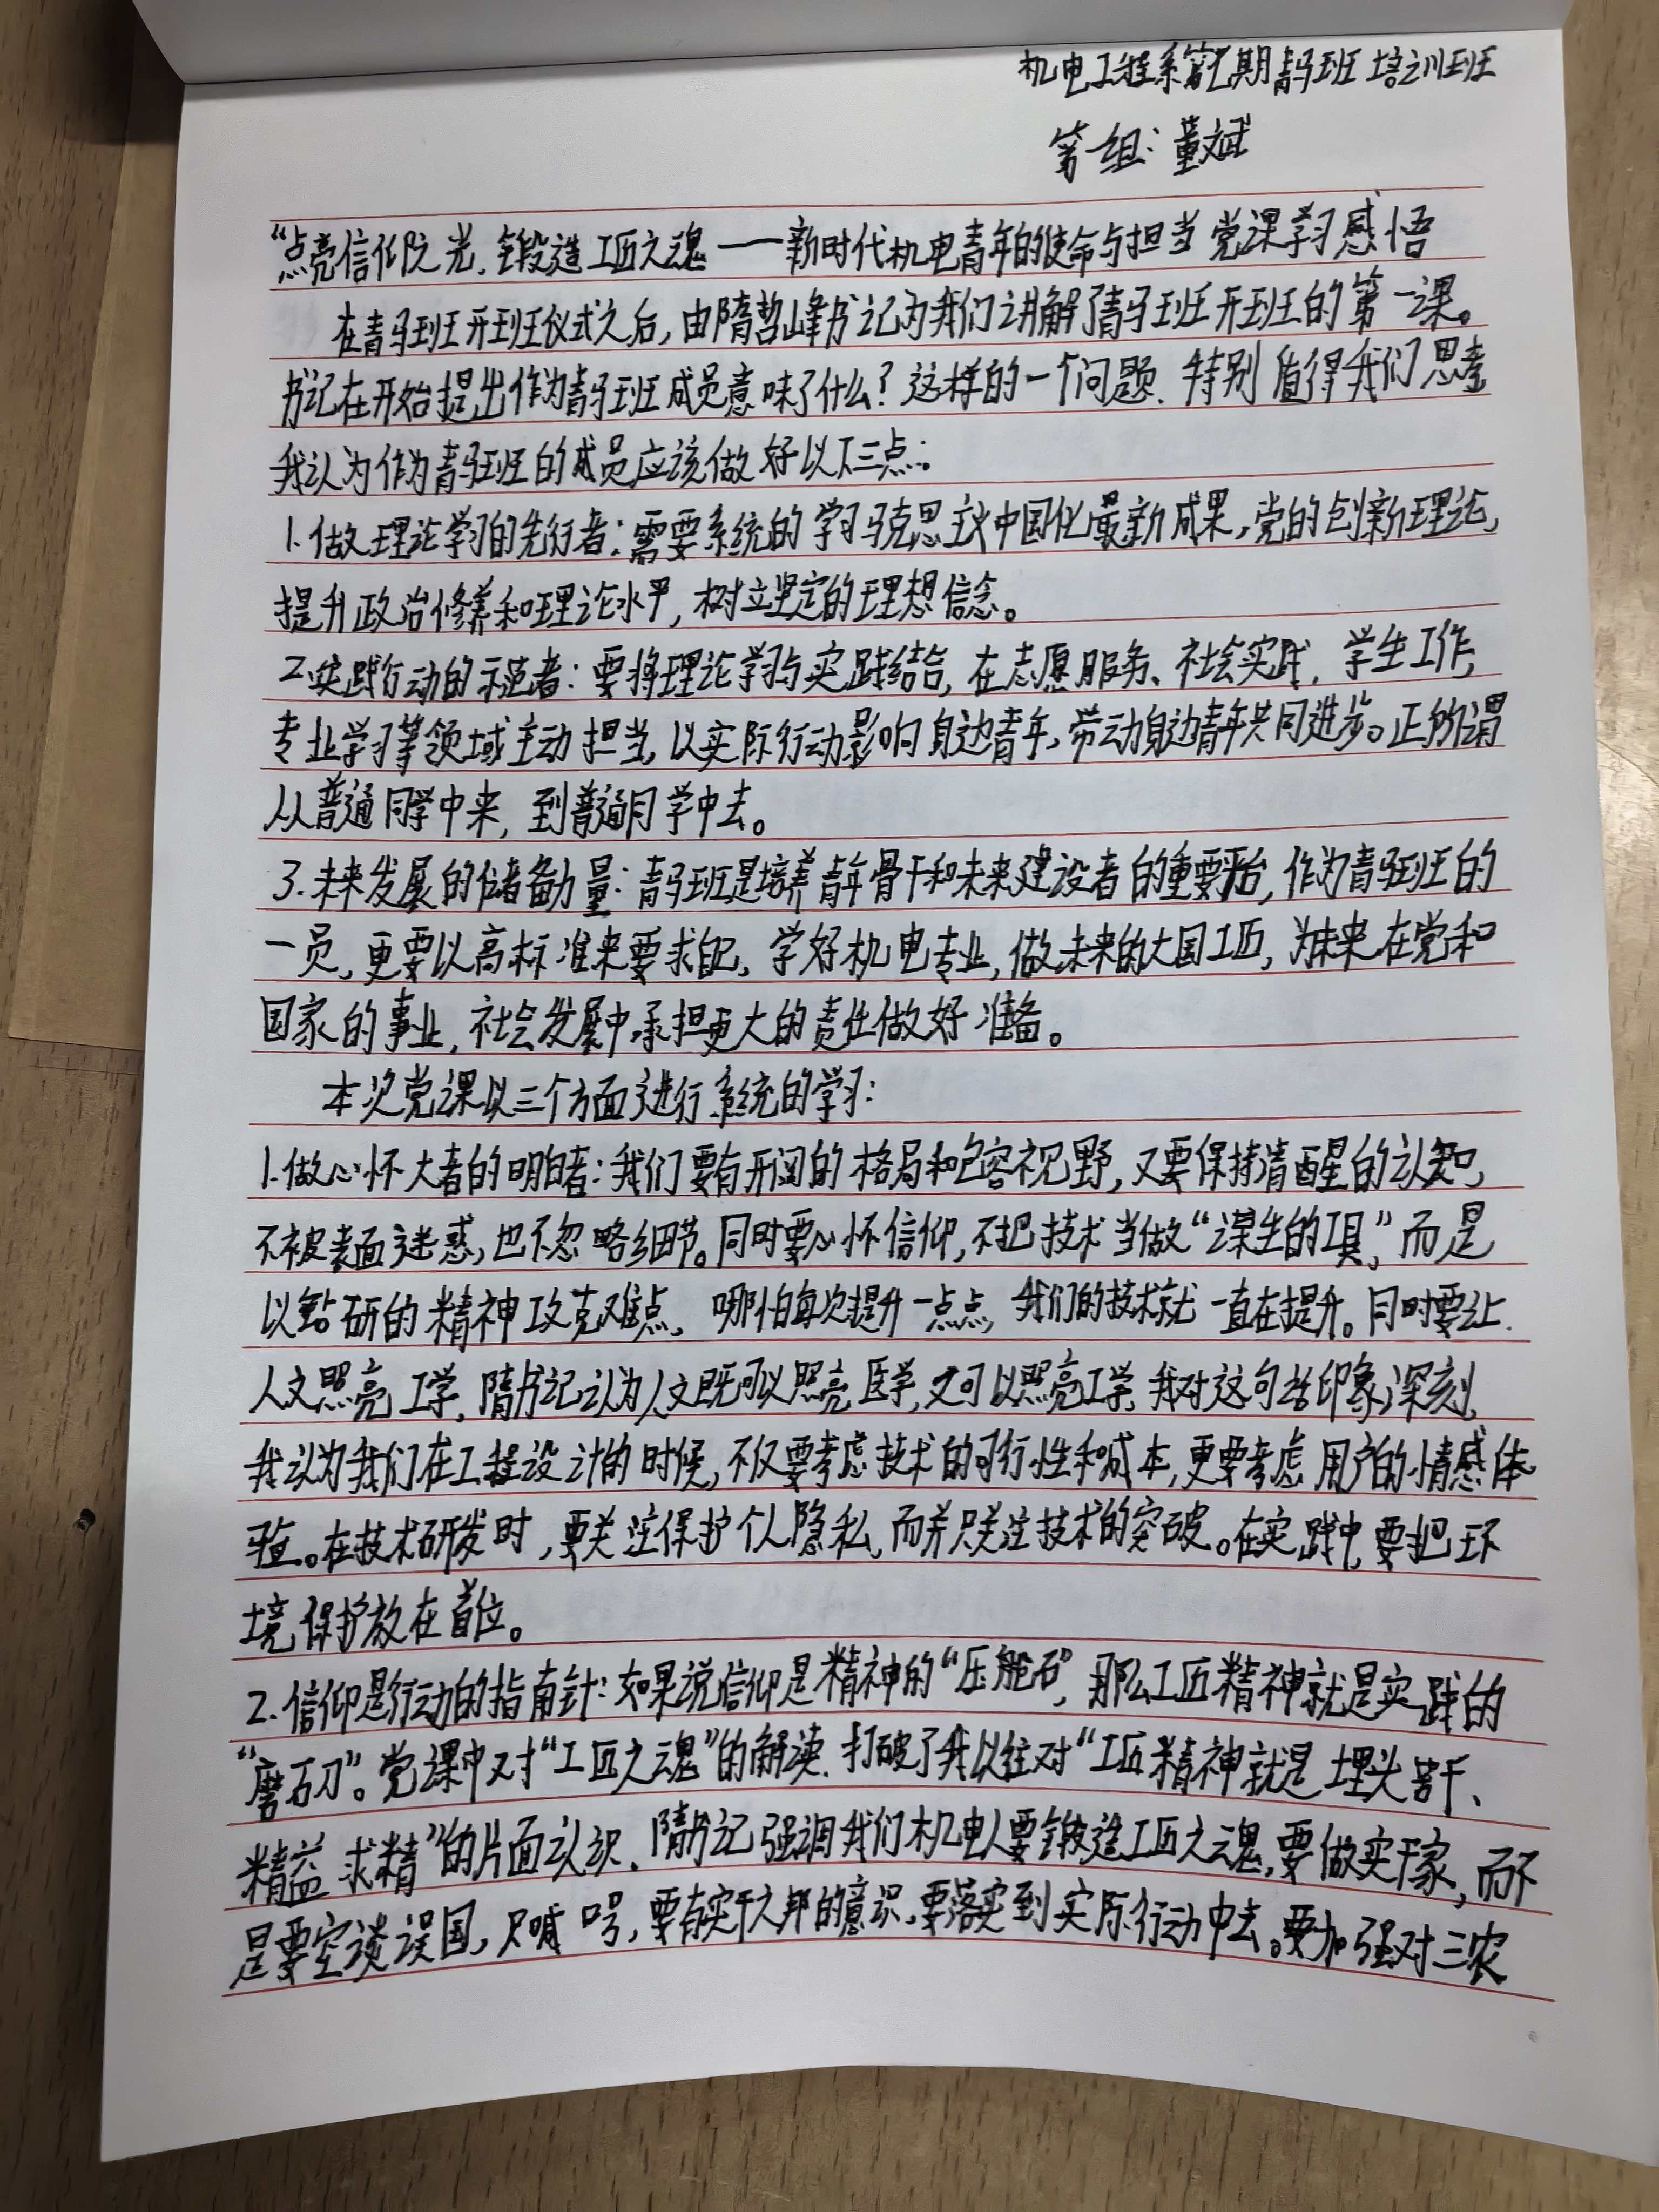 机电工程系第七期青马班培训班
第一组：董斌
“点亮信仰之光，锻造工匠之魂——新时代机电青年的使命与担当党课学习感悟
在青马班开班仪式之后，由隋哲峰书记为我们讲解了青马班开班的第一课。
书记在开始提出作为青马班成员意味了什么？这样的一个问题．特别值得我们思考
我认为作为青马班的成员应该做好以下三点：
1.做理论学习的先行者：需要系统的学习马克思主义中国化最新成果，党的创新理论，
提升政治修养和理论水平，树立坚定的理想信念。
2.实践行动的示范者：要将理论学习与实践结合，在志愿服务、社会实践，学生工作，
专业学习等领域主动担当，以实际行动影响身边青年，带动身边青年共同进步。正所谓
从普通同学中来，到普通同学中去。
3.未来发展的储备力量：青马班是培养青年骨干和未来建设者的重要平台，作为青马班的
一员，更要以高标准来要求自己，学好机电专业，做未来的大国工匠，为未来在党和
国家的事业，社会发展中承担更大的责任做好准备。
本次党课以三个方面进行系统的学习：
1.做心怀大者的明白者：我们要有开阔的格局和包容视野，又要保持清醒的认知，
不被表面迷惑，也不忽略细节。同时要心怀信仰，不把技术当做“谋生的工具”，而是
以钻研的精神攻克难点，哪怕每次提升一点点，我们的技术就一直在提升。同时要让
人文照亮工学，隋书记认为人文既可以照亮医学，又可以照亮工学，我对这句话印象深刻，
我认为我们在工程设计的时候，不仅要考虑技术的可行性和成本，更要考虑用户的情感体
验。在技术研发时，要关注保护个人隐私，而并只关注技术的突破。在实践中，要把环
境保护放在首位。
2.信仰是行动的指南针：如果说信仰是精神的“压舱石”，那么工匠精神就是实践的
“磨石刀”。党课中对“工匠之魂”的解读，打破了我以往对“工匠精神就是埋头苦干、
精益求精”的片面认识，隋书记强调我们机电人要锻造工匠之魂，要做实干家，而不
是要空谈误国，只喊口号，要有实干兴邦的意识，要落实到实际行动中去。要加强对三农